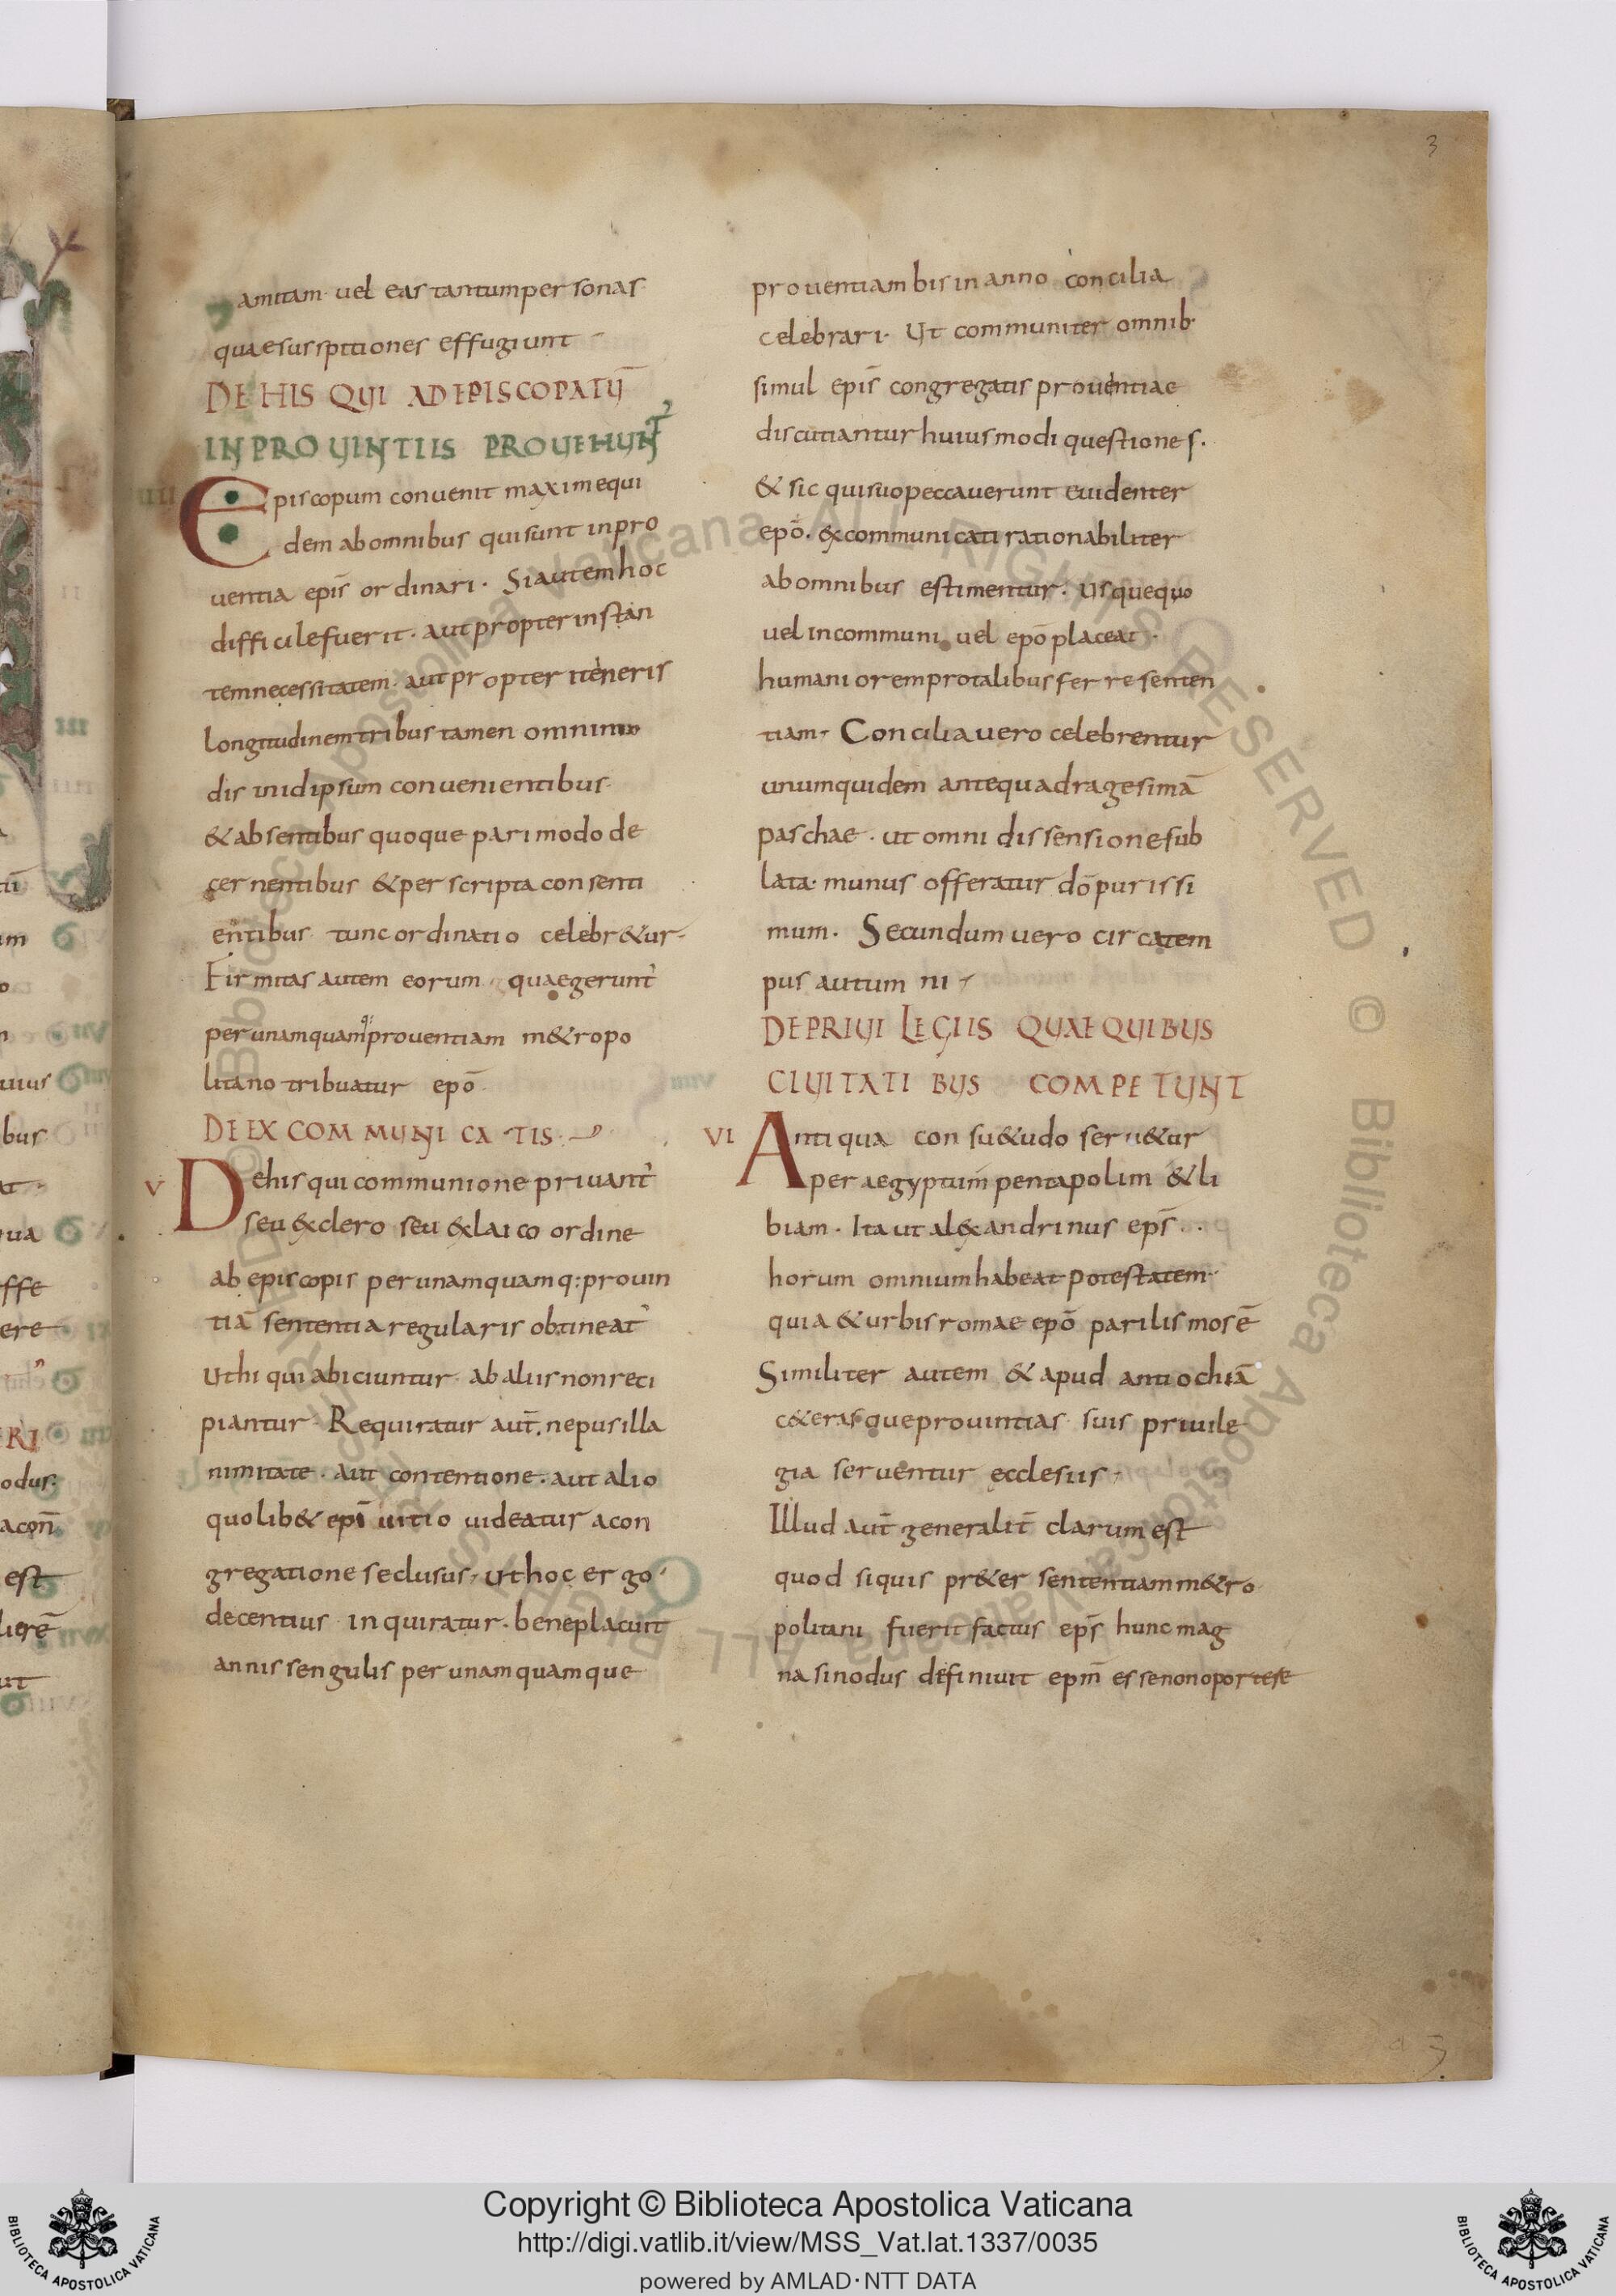 3
amitam· uel eas tantumpersonas
quaesusspitiones effugiunt
DE HIS QUI AD EPISCOPATŪ
IN PROUINTIIS PROUEHUNT᷒
IIII Episcopum conuenit maximequi
dem abomnibus quisunt inpro
uentia epīs ordinari· Siautemhoc
difficilefuerit· autpropterinstan
temnecessitatem· autpropter iteneris
longitudinemtribustamen omnimo
dis inidipsum conuenientibus·
&absentibus quoque parimodo de
cernentibus &perscriptaconsenti
entibus tuncordinatio celebr&ur·
Firmitas autem eorum quaegerunt᷒
perunamquamq;prouentiam m&ropo
litano tribuatur epō
DE EXCOMMUNICATIS·
V Dehisqui communione priuant᷒
seu exclero seu exlaico ordine
ab episcopis perunamquamq:prouin
tiā sententiaregularis obtineat᷒
Uthi qui abiciuntur· abaliisnonreci
piantur· Requiratur aut̄. nepusilla
nimitate· aut contentione· aut alio
quolib& epī uitio uideatur acon
gregatione seclusus, uthoc ergo·
decentius inquiratur· beneplacuit
annissengulis perunamquamque
prouentiam bisinanno concilia
celebrari· Ut communiter omnib·
simul epīs congregatis prouentiae
discutianturhuiusmodi questiones.
& sic quisuopeccauerunt euidenter
epō. excommunicati rationabiliter
abomnibus estimentur· usquequo
uel incommuni uel epō placeat·
humanioremprotalibusferresenten
tiam, Conciliauero celebrentur
unumquidem antequadragesimā
paschae· ut omni dissensionesub
lata· munus offeratur dō purissi
mum. Secundumuero circatem
pus autumni
DE PRIUILEGIIS QUAE QUIBUS
CIUITATIBUS COMPETUNT
VI Antiqua consu&udo seru&ur
per aegyptum pentapolim &li
biam· Ita ut alexandrinus eps̄.
horum omniumhabeat potestatem·
quia &urbisromae epō parilis mosē
Similiter autem &apud antiochiā
c&erasqueprouintias suis priuile
gia seruentur ecclesiis·
Illud aut̄ generalit̄ clarum est
quod siquis pr&er sententiamm&ro
politani fuerit factus eps̄ hunc mag
na sinodus definiuit epm̄ essenonoportese
Copyright © Biblioteca Apostolica Vaticana
http://digi.vatlib.it/view/MSS_Vat.lat.1337/0035
powered by AMLAD·NTT DATA